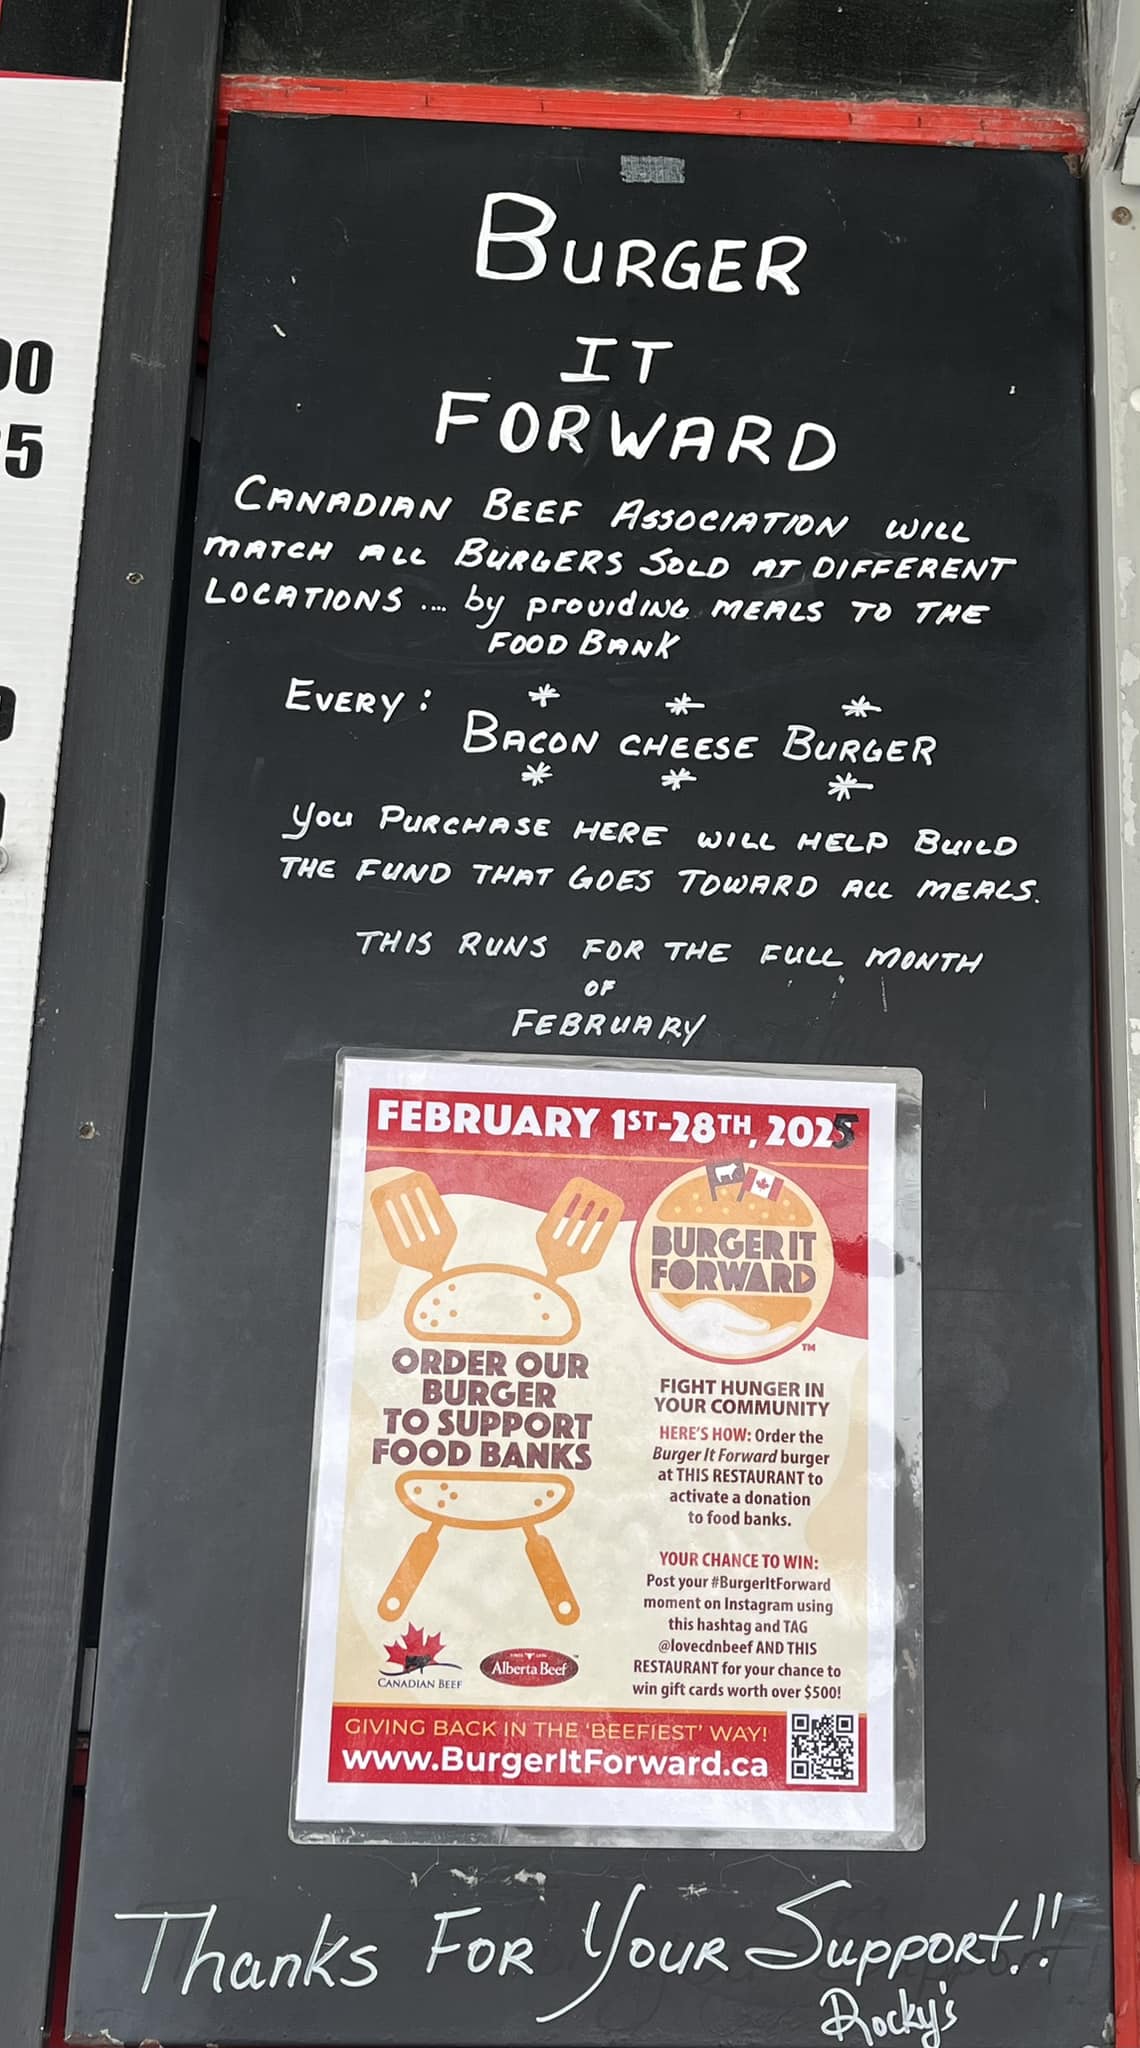 00
5
BURGER
IT
FORWARD
CANADIAN BEEF ASSOCIATION WILL
MATCH ALL BURGERS SOLD AT DIFFERENT
LOCATIONS .... by providing MEALS TO THE
FOOD BANK
EVERY: * * *
BACON CHEESE BURGER
* * *
You PURCHASE HERE WILL HELP BUILD
THE FUND THAT GOES TOWARD ALL MEALS.
THIS RUNS FOR THE FULL MONTH
OF
FEBRUARY
FEBRUARY 1ST-28TH, 2025
BURGER IT
FORWARD
TM
ORDER OUR
BURGER
TO SUPPORT
FOOD BANKS
FIGHT HUNGER IN
YOUR COMMUNITY
HERE'S HOW: Order the
Burger It Forward burger
at THIS RESTAURANT to
activate a donation
to food banks.
YOUR CHANCE TO WIN:
Post your #BurgerItForward
moment on Instagram using
this hashtag and TAG
@lovecdnbeef AND THIS
RESTAURANT for your chance to
win gift cards worth over $500!
CANADIAN BEEF
Alberta Beef
GIVING BACK IN THE 'BEEFIEST' WAY!
www.BurgerItForward.ca
Thanks FOR YOUR SUPPORT!!
Rocky's